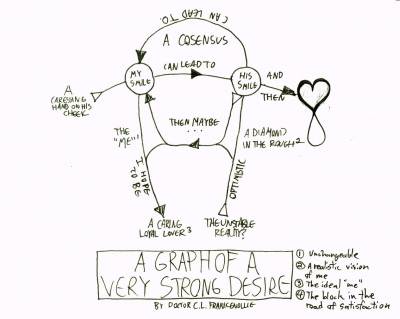 CAN LEAD TO
A COSENSUS
CAN LEAD TO
MY
SMILE
HIS
SMILE
AND
THEN
A
CARESSING
HAND ON HIS
CHEEK
THEN MAYBE
...
THE
"ME"¹
A DIAMOND
IN THE ROUGH²
I HOPE
TO BE
OPTIMISTIC
A CARING
LOYAL LOVER³
THE UNSTABLE
REALITY?
A GRAPH OF A
VERY STRONG DESIRE
BY DOCTOR C.L.
① Unchangeable
② A realistic vision
of me
③ The ideal "me"
④ The block in the
road of satisfaction